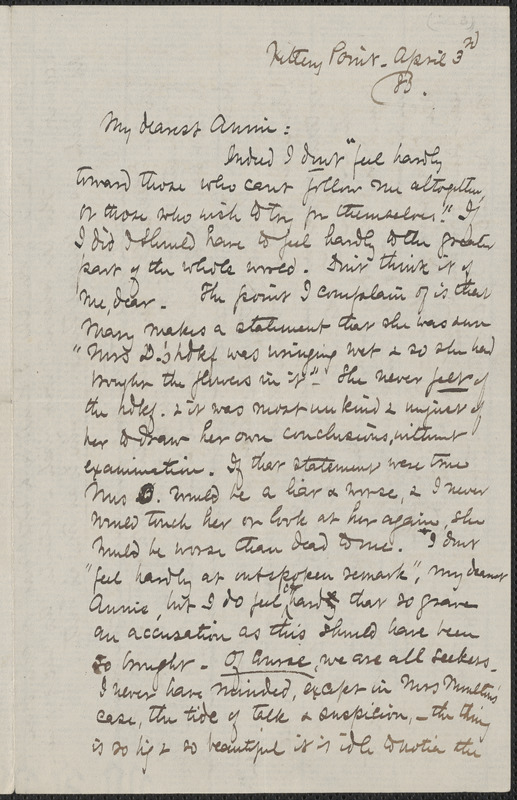 Kittery Point - April 3d
83.
My dearest Annie:
Indeed I don't "feel hardly
toward those who can't follow me altogether,
or those who wish to try for themselves!" If
I did I should have to feel hardly to the greater
part of the whole world. Don't think it of
me, dear. The point I complain of is that
Mary makes a statement that she was sure
"Mrs D.'s hdkf was wringing wet & so she had
brought the flowers in it"- She never felt of
the hdkf. & it was most unkind & unjust of
her to draw her own conclusions, without
examination. If that statement were true
Mrs D. would be a liar & worse, & I never
would touch her or look at her again, she
would be worse than dead to me. I don't
"feel hardly at outspoken remark", my dearest
Annie, but I do feel hard that so grave
an accusation as this should have been
so brought - Of course, we are all seekers -
I never have minded, except in Mrs
case, the tide of talk & suspicion, - the thing
is so big & so beautiful it is idle to notice the